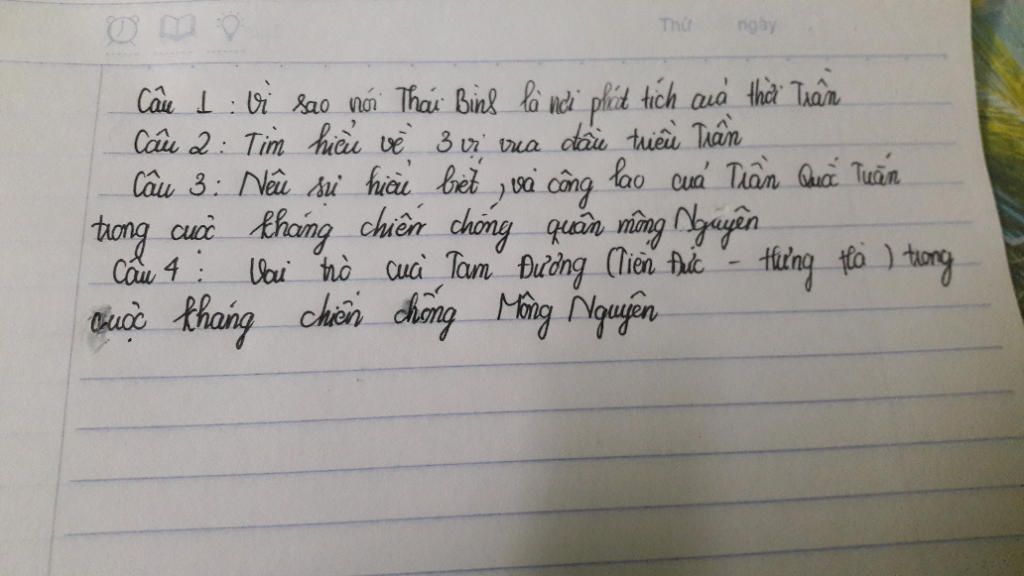 Thứ ngày
Câu 1 : Vì sao nói Thái Bình là nơi phát tích của thời Trần
Câu 2 : Tìm hiểu về 3 vị vua đầu triều Trần
Câu 3 : Nêu sự hiểu biết, và công lao của Trần Quốc Tuấn
trong cuộc kháng chiến chống quân mông Nguyên
Câu 4 : Vai trò của Tam Đường (Tiến Đức - Hưng Hà) trong
cuộc kháng chiến chống Mông Nguyên